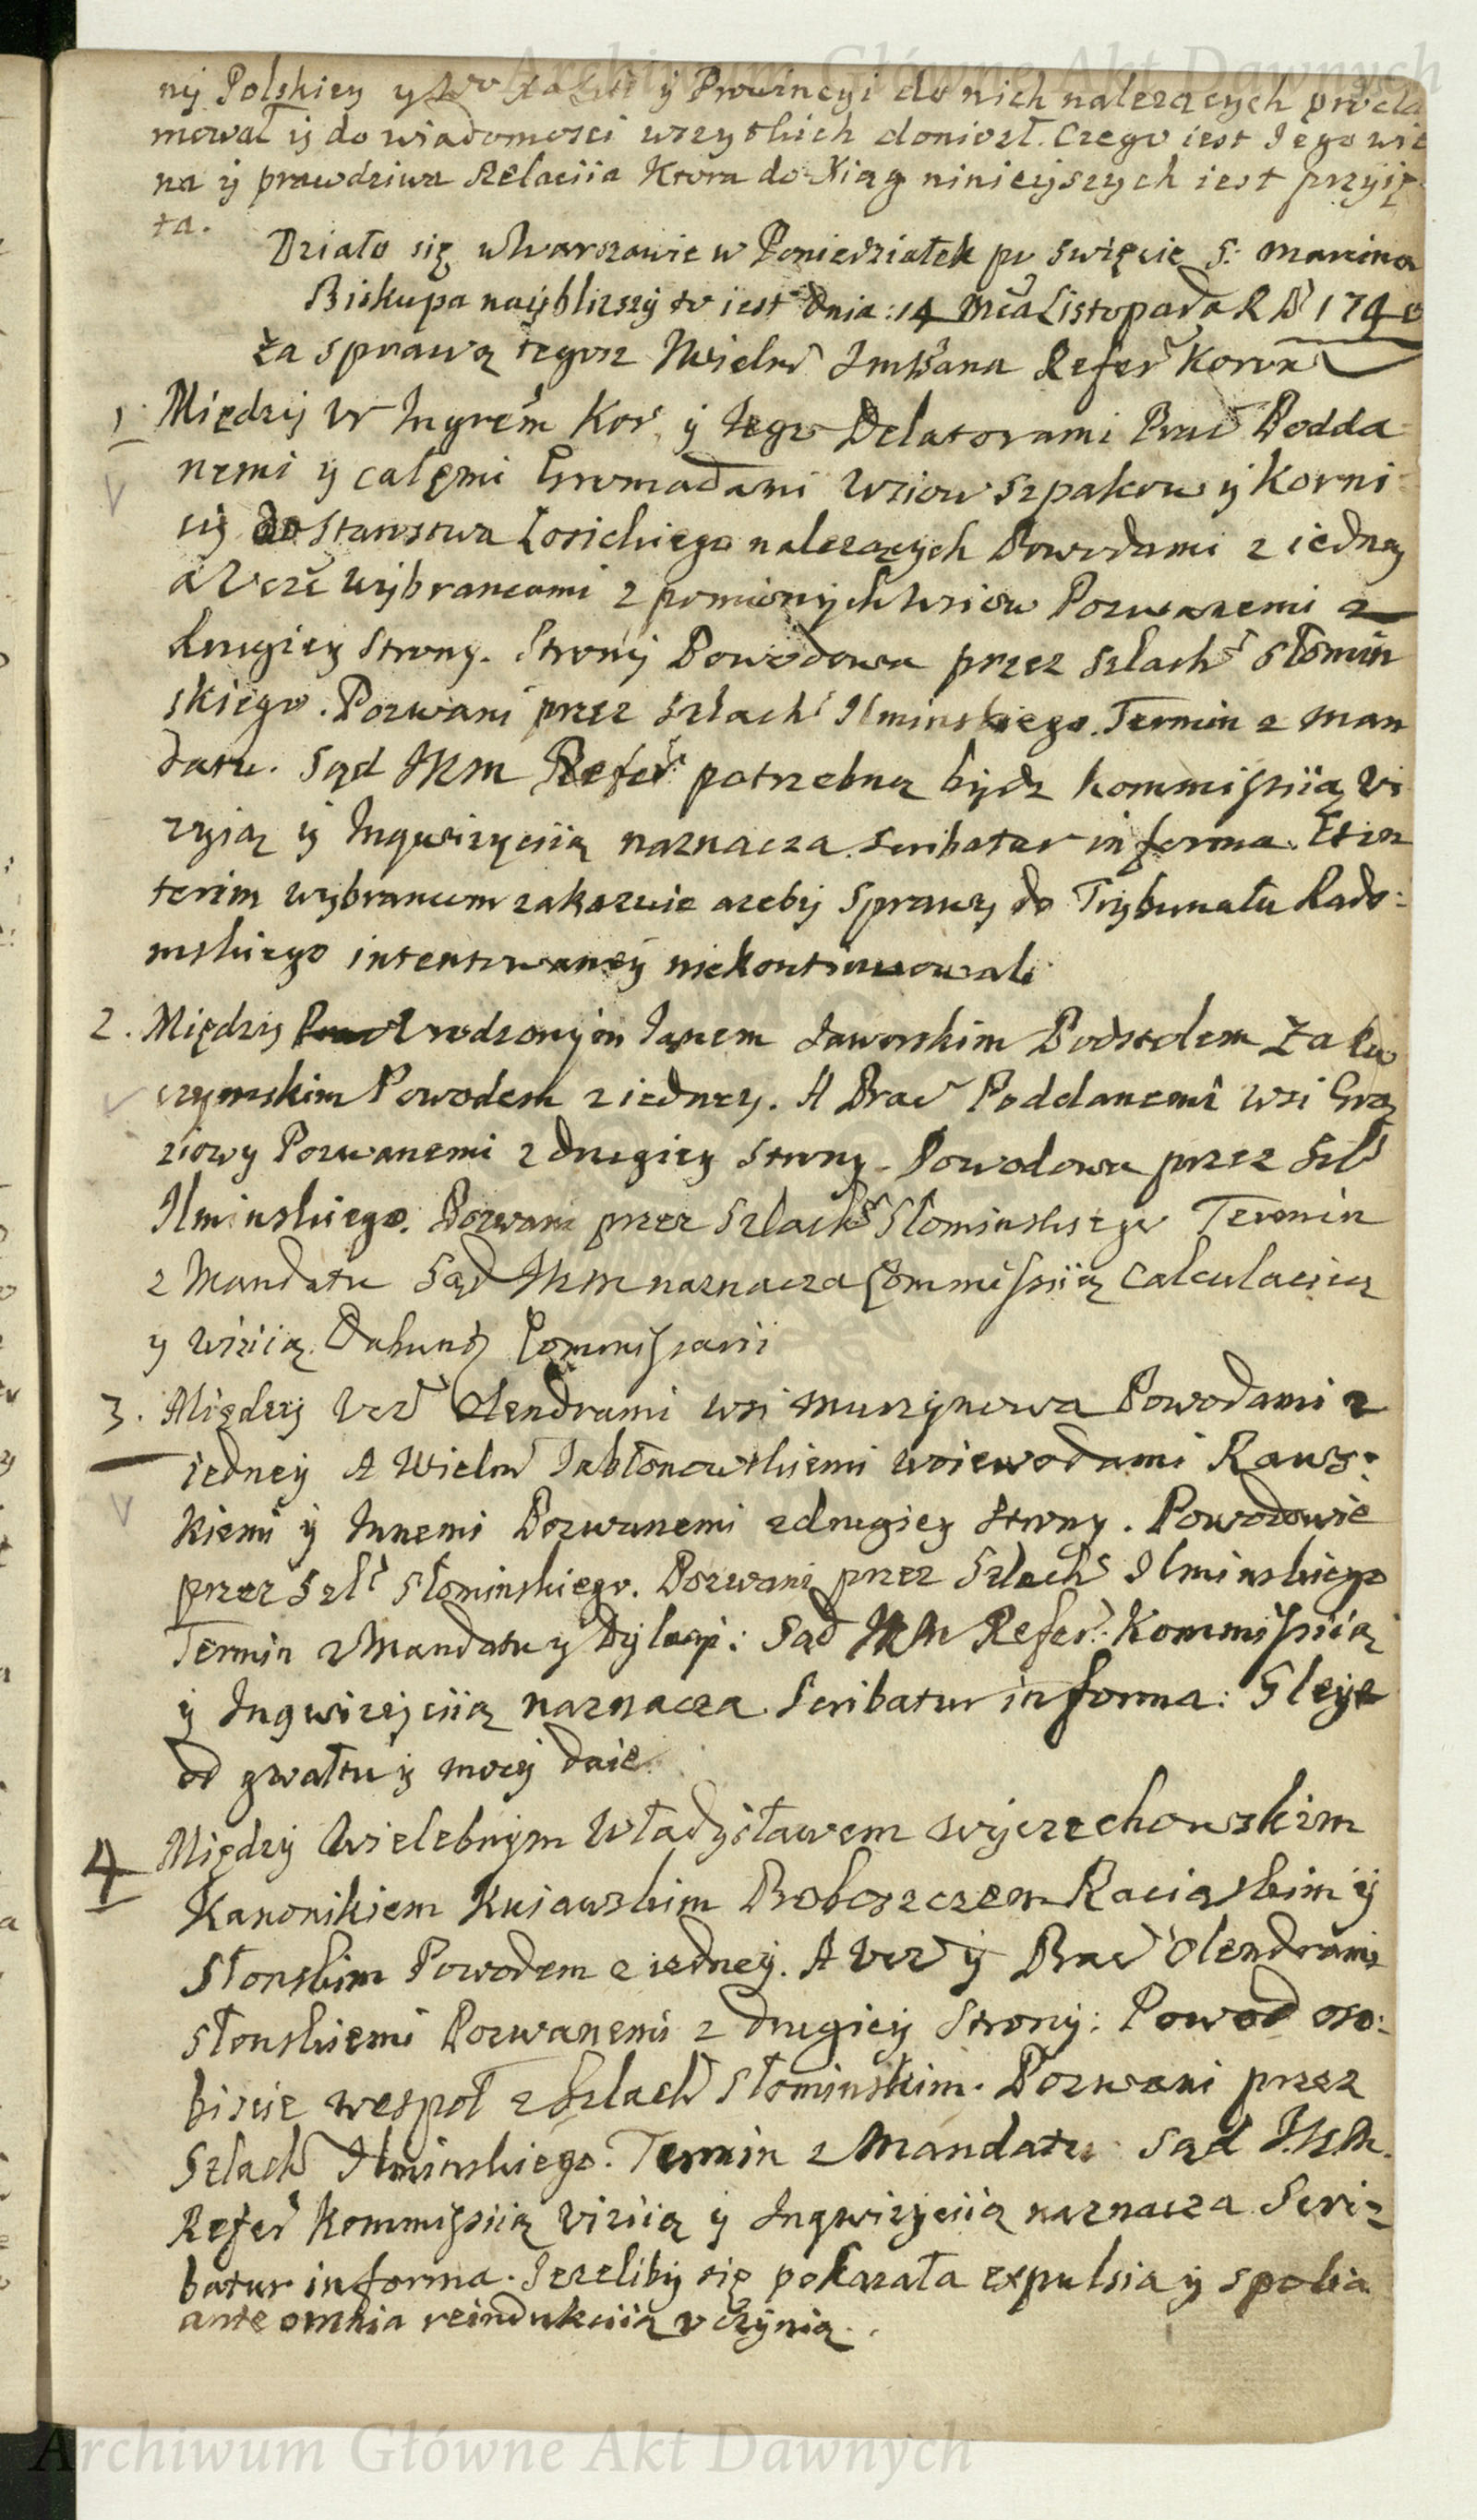 Archiwum Główne Akt Dawnych
ny Polskiey y y Prowincyi do nich nalezących procla
mował y do wiadomosci wszytkich doniosł. Czego iest Jego wie
na y prawdziwa Relaciia Ktora do Xiąg ninieyszych iest przyię
ta.
Działo się w Warszawie w Poniedziałek po Swięcie S: Marcina
Biskupa nayblizszy to iest Dnia: 14 Mca Listopada R D 1740
Za sprawą tegosz Wieln ImPana Refer Koron
1. Między Ur Ingrem Kor y Jego Delatorami Prac Podda
nemi y całęmi Gromadami Wsiow Szpakow y Korni
cy do Starostwa Łosickiego nalezących Powodami z iedney
a Ucz Wybrancami z pomionych Wsiow Pozwanemi z
drugiey Strony. Strony Powodowa przez Szlach Słomin
skiego. Pozwani przez Szlach Ilminskiego. Termin z Man
datu. Sąd JKM Refer potrzebną bydz Kommissiią Vi
zyią y Inqwizyciią naznacza. Scribatur in forma. Et in
terim wybrancom zakazuie azeby Sprawy do Trybunału Rado:
mskiego intentowaney niekontinuowali
2. Między Urodzonym Janem Jaworskim Podstolem Zakro
czymskim Powodem z iedney. A Prac Poddanemi Wsi Grą
ziowy Pozwanemi z drugiey Strony. Powodowa przez Szl
Ilminskiego. Pozwani przez Szlach Słominskiego Termin
z Mandatu Sąd JKM naznacza Commissiią Calculacią
y Wizią. Dabunt Commissarii
3. Między Ucz Olendrami wsi Muszynowa Powodami z
iedney A Wieln Jabłonowskiemi Woiewodami Raws:
kiemi y Innemi Pozwanemi z drugiey Strony. Powodowie
przez Szl Słominskiego. Pozwani przez Szlach Ilminskiego
Termin z Mandatu y Dylacyi: Sąd JKM Refer: Kommissiią
y Ingwizyciią naznacza. Scribatur in forma: Gleyt
od gwałtu y mocy daie.
4 Między Wielebnym Władysławem Wyczechowskim
Kanonikiem Kuiawskim Proboszczem Raciąskim y
Słonskim Powodem z iedney. A Ucz y Prac Olendrami
Słonskiemi Pozwanemi z drugiey Strony: Powod oso:
biscie wespoł z Szlach Słominskim. Pozwani przez
Szlach Ilminskiego. Termin z Mandatu Sąd J.K.M.
Refer Kommissiią Viziią y Inqwizyciią naznacza Scri-
batur in forma. Jezeliby się pokazała expulsia y spolia
ante omnia reindukciią uczynią.
Archiwum Główne Akt Dawnych